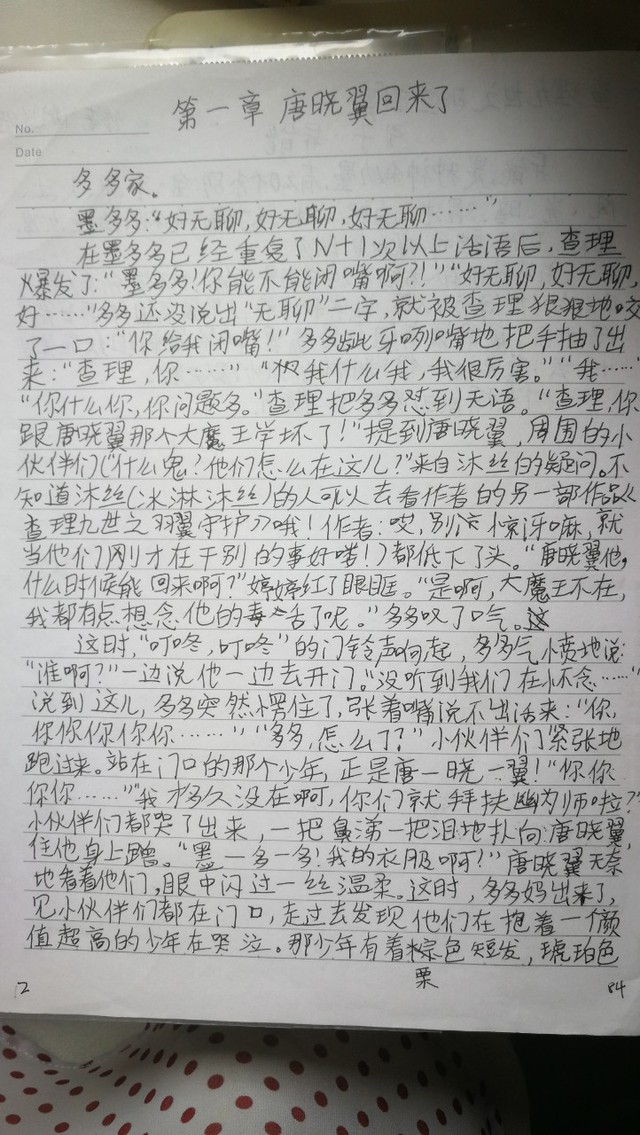 第一章 唐晓翼回来了
No.
Date
多多家。
墨多多:“好无聊,好无聊,好无聊……”
在墨多多已经重复了N+1次以上话语后,查理
爆发了:“墨多多!你能不能闭嘴啊?!”“好无聊,好无聊,
好……”多多还没说出“无聊”二字,就被查理狠狠地咬
了一口:“你给我闭嘴!”多多龇牙咧嘴地把手抽了出
来:“查理,你……”“我什么我,我很厉害。”“我……”
“你什么你,你问题多。”查理把多多怼到无语。“查理,你
跟唐晓翼那个大魔王学坏了!”提到唐晓翼,周围的小
伙伴们(“什么鬼?他们怎么在这儿?”来自沐丝的疑问。不
知道沐丝(冰淋沐丝)的人可以去看作者的另一部作品《
查理九世之羽翼守护》哦!作者:哎,别这惊讶嘛,就
当他们刚才在干别的事好喽!)都低下了头。“唐晓翼他,
什么时候能回来啊?”婷婷红了眼眶。“是啊,大魔王不在,
我都有点想念他的毒舌了呢。”多多叹了口气。
这时,“叮咚,叮咚”的门铃声响起,多多气愤地说:
“谁啊?”一边说他一边去开门。“没听到我们在怀念……”
说到这儿,多多突然愣住了,张着嘴说不出话来:“你,
你你你你你……”“多多,怎么了?”小伙伴们紧张地
跑过来。站在门口的那个少年,正是唐一晓一翼!“你你
你你……”“我才多久没在啊,你们就拜扶幽为师啦?”
小伙伴们都哭了出来,一把鼻涕一把泪地扑向唐晓翼,
往他身上蹭。“墨一多一多!我的衣服啊?”唐晓翼无奈
地看着他们,眼中闪过一丝温柔。这时,多多妈出来了,
见小伙伴们都在门口,走过去发现他们在抱着一个颜
值超高的少年在哭泣。那少年有着棕色短发,琥珀色
栗
12
84